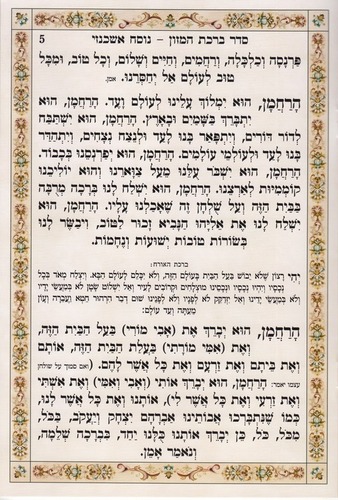 סדר ברכת המזון – נוסח אשכנזי 5
פַּרְנָסָה וְכַלְכָּלָה, וְרַחֲמִים, וְחַיִּים וְשָׁלוֹם, וְכָל טוֹב, וּמִכָּל
טוּב לְעוֹלָם אַל יְחַסְּרֵנוּ. אמן.
הָרַחֲמָן, הוּא יִמְלוֹךְ עָלֵינוּ לְעוֹלָם וָעֶד. הָרַחֲמָן, הוּא
יִתְבָּרַךְ בַּשָּׁמַיִם וּבָאָרֶץ. הָרַחֲמָן, הוּא יִשְׁתַּבַּח
לְדוֹר דּוֹרִים, וְיִתְפָּאַר בָּנוּ לָעַד וּלְנֵצַח נְצָחִים, וְיִתְהַדַּר
בָּנוּ לָעַד וּלְעוֹלְמֵי עוֹלָמִים. הָרַחֲמָן, הוּא יְפַרְנְסֵנוּ בְּכָבוֹד.
הָרַחֲמָן, הוּא יִשְׁבֹּר עֻלֵּנוּ מֵעַל צַוָּארֵנוּ וְהוּא יוֹלִיכֵנוּ
קוֹמְמִיּוּת לְאַרְצֵנוּ. הָרַחֲמָן, הוּא יִשְׁלַח לָנוּ בְּרָכָה מְרֻבָּה
בַּבַּיִת הַזֶּה, וְעַל שֻׁלְחָן זֶה שֶׁאָכַלְנוּ עָלָיו. הָרַחֲמָן, הוּא
יִשְׁלַח לָנוּ אֶת אֵלִיָּהוּ הַנָּבִיא זָכוּר לַטּוֹב, וִיבַשֶּׂר לָנוּ
בְּשׂוֹרוֹת טוֹבוֹת יְשׁוּעוֹת וְנֶחָמוֹת.
ברכת האורח:
יְהִי רָצוֹן שֶׁלֹּא יֵבוֹשׁ בַּעַל הַבַּיִת בָּעוֹלָם הַזֶּה, וְלֹא יִכָּלֵם לָעוֹלָם הַבָּא. וְיִצְלַח מְאֹד בְּכָל
נְכָסָיו וְיִהְיוּ נְכָסָיו וּנְכָסֵינוּ מוּצְלָחִים וּקְרוֹבִים לָעִיר וְאַל יִשְׁלוֹט שָׂטָן לֹא בְּמַעֲשֵׂי יָדָיו
וְלֹא בְּמַעֲשֵׂי יָדֵינוּ וְאַל יִזְדַּקֵּק לֹא לְפָנָיו וְלֹא לְפָנֵינוּ שׁוּם דְּבַר הִרְהוּר חֵטְא וַעֲבֵירָה וְעָוֹן
מֵעַתָּה וְעַד עוֹלָם:
הָרַחֲמָן, הוּא יְבָרֵךְ אֶת (אָבִי מוֹרִי) בַּעַל הַבַּיִת הַזֶּה,
וְאֶת (אִמִּי מוֹרָתִי) בַּעֲלַת הַבַּיִת הַזֶּה, אוֹתָם
וְאֶת בֵּיתָם וְאֶת זַרְעָם וְאֶת כָּל אֲשֶׁר לָהֶם. (ואם סמוך על שולחן
עצמו יאמר: הָרַחֲמָן, הוּא יְבָרֵךְ אוֹתִי (וְאָבִי וְאִמִּי) וְאֶת אִשְׁתִּי
וְאֶת זַרְעִי וְאֶת כָּל אֲשֶׁר לִי), אוֹתָנוּ וְאֶת כָּל אֲשֶׁר לָנוּ,
כְּמוֹ שֶׁנִּתְבָּרְכוּ אֲבוֹתֵינוּ אַבְרָהָם יִצְחָק וְיַעֲקֹב, בַּכֹּל,
מִכֹּל, כֹּל, כֵּן יְבָרֵךְ אוֹתָנוּ כֻּלָּנוּ יַחַד, בִּבְרָכָה שְׁלֵמָה,
וְנֹאמַר אָמֵן.